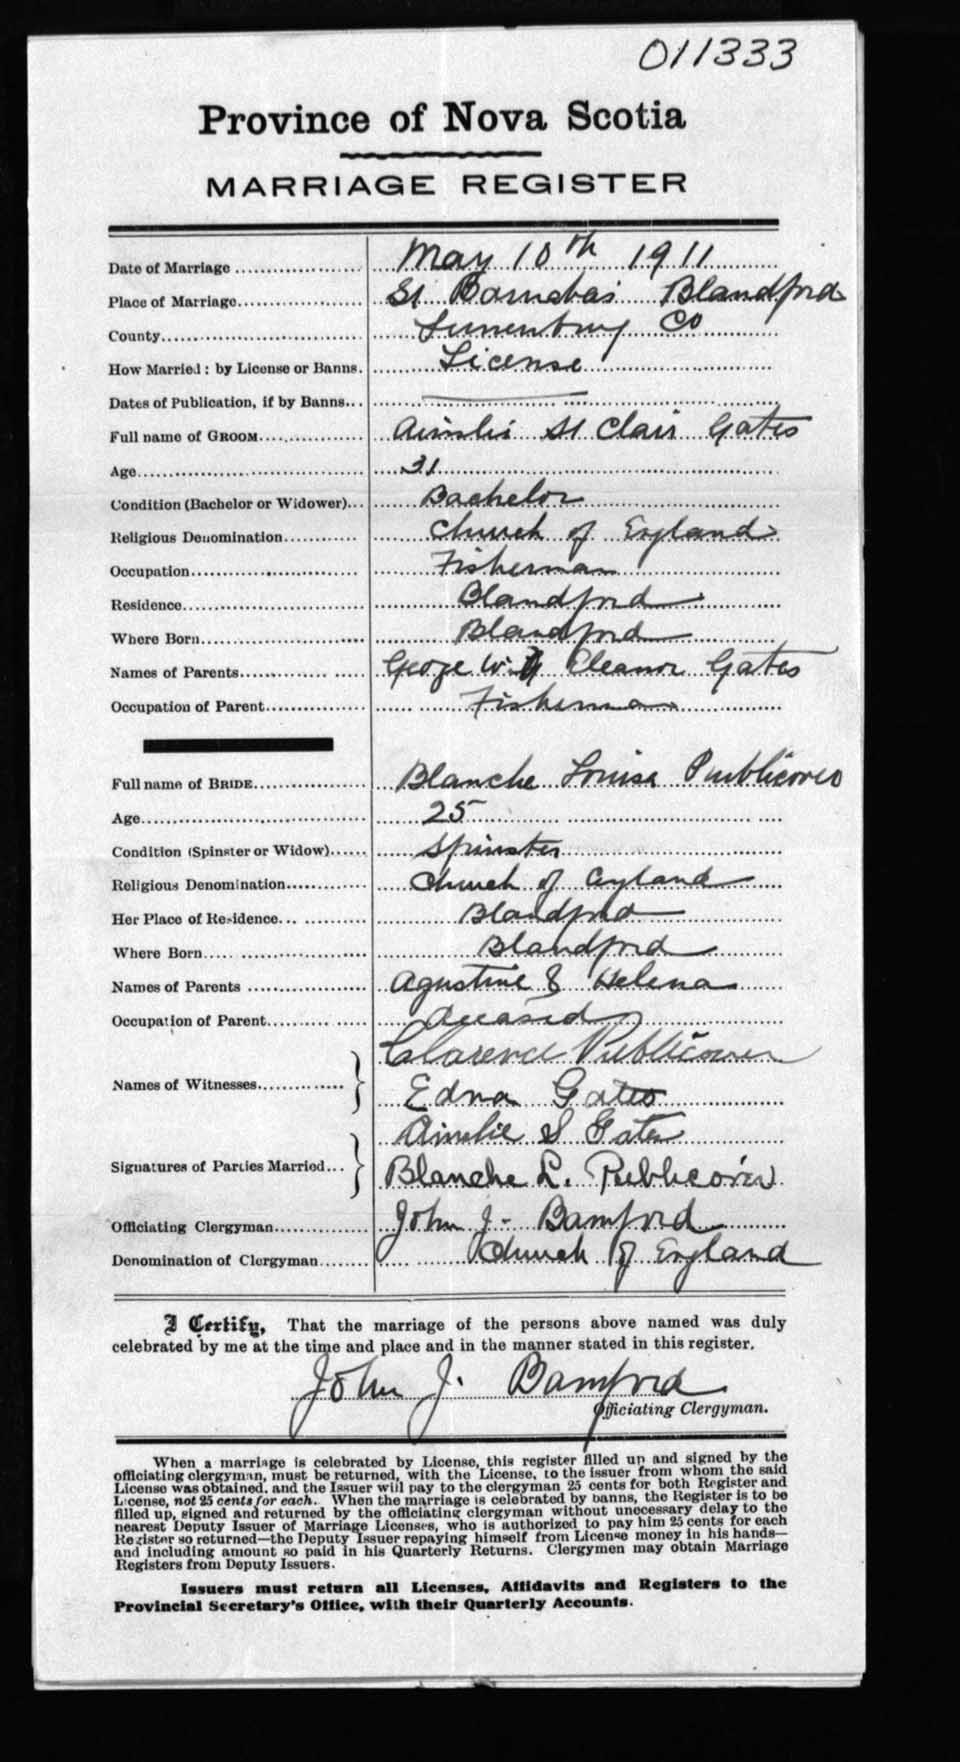 011333
Province of Nova Scotia
MARRIAGE REGISTER
Date of Marriage May 10th 1911
Place of Marriage St Barnabas Blandford
County Lunenburg Co
How Married: by License or Banns. License
Dates of Publication, if by Banns
Full name of GROOM Ainslie St Clair Gates
Age 31
Condition (Bachelor or Widower) Bachelor
Religious Denomination Church of England
Occupation Fisherman
Residence Blandford
Where Born Blandford
Names of Parents George W. Eleanor Gates
Occupation of Parent Fisherman
Full name of BRIDE Blanche Louisa Publicover
Age 25
Condition (Spinster or Widow) Spinster
Religious Denomination Church of England
Her Place of Residence Blandford
Where Born Blandford
Names of Parents Agustine & Helena
Occupation of Parent deceased
Clarence Publicover
Names of Witnesses
Edna Gates
Ainslie S Gates
Signatures of Parties Married
Blanche L. Publicover
Officiating Clergyman John J. Bamford
Denomination of Clergyman Church of England
I Certify, That the marriage of the persons above named was duly
celebrated by me at the time and place and in the manner stated in this register.
John J. Bamford
Officiating Clergyman.
When a marriage is celebrated by License, this register filled up and signed by the
officiating clergyman, must be returned, with the License, to the issuer from whom the said
License was obtained, and the Issuer will pay to the clergyman 25 cents for both Register and
License, not 25 cents for each. When the marriage is celebrated by banns, the Register is to be
filled up, signed and returned by the officiating clergyman without unecessary delay to the
nearest Deputy Issuer of Marriage Licenses, who is authorized to pay him 25 cents for each
Register so returned—the Deputy Issuer repaying himself from License money in his hands—
and including amount so paid in his Quarterly Returns. Clergymen may obtain Marriage
Registers from Deputy Issuers.
Issuers must return all Licenses, Affidavits and Registers to the
Provincial Secretary's Office, with their Quarterly Accounts.